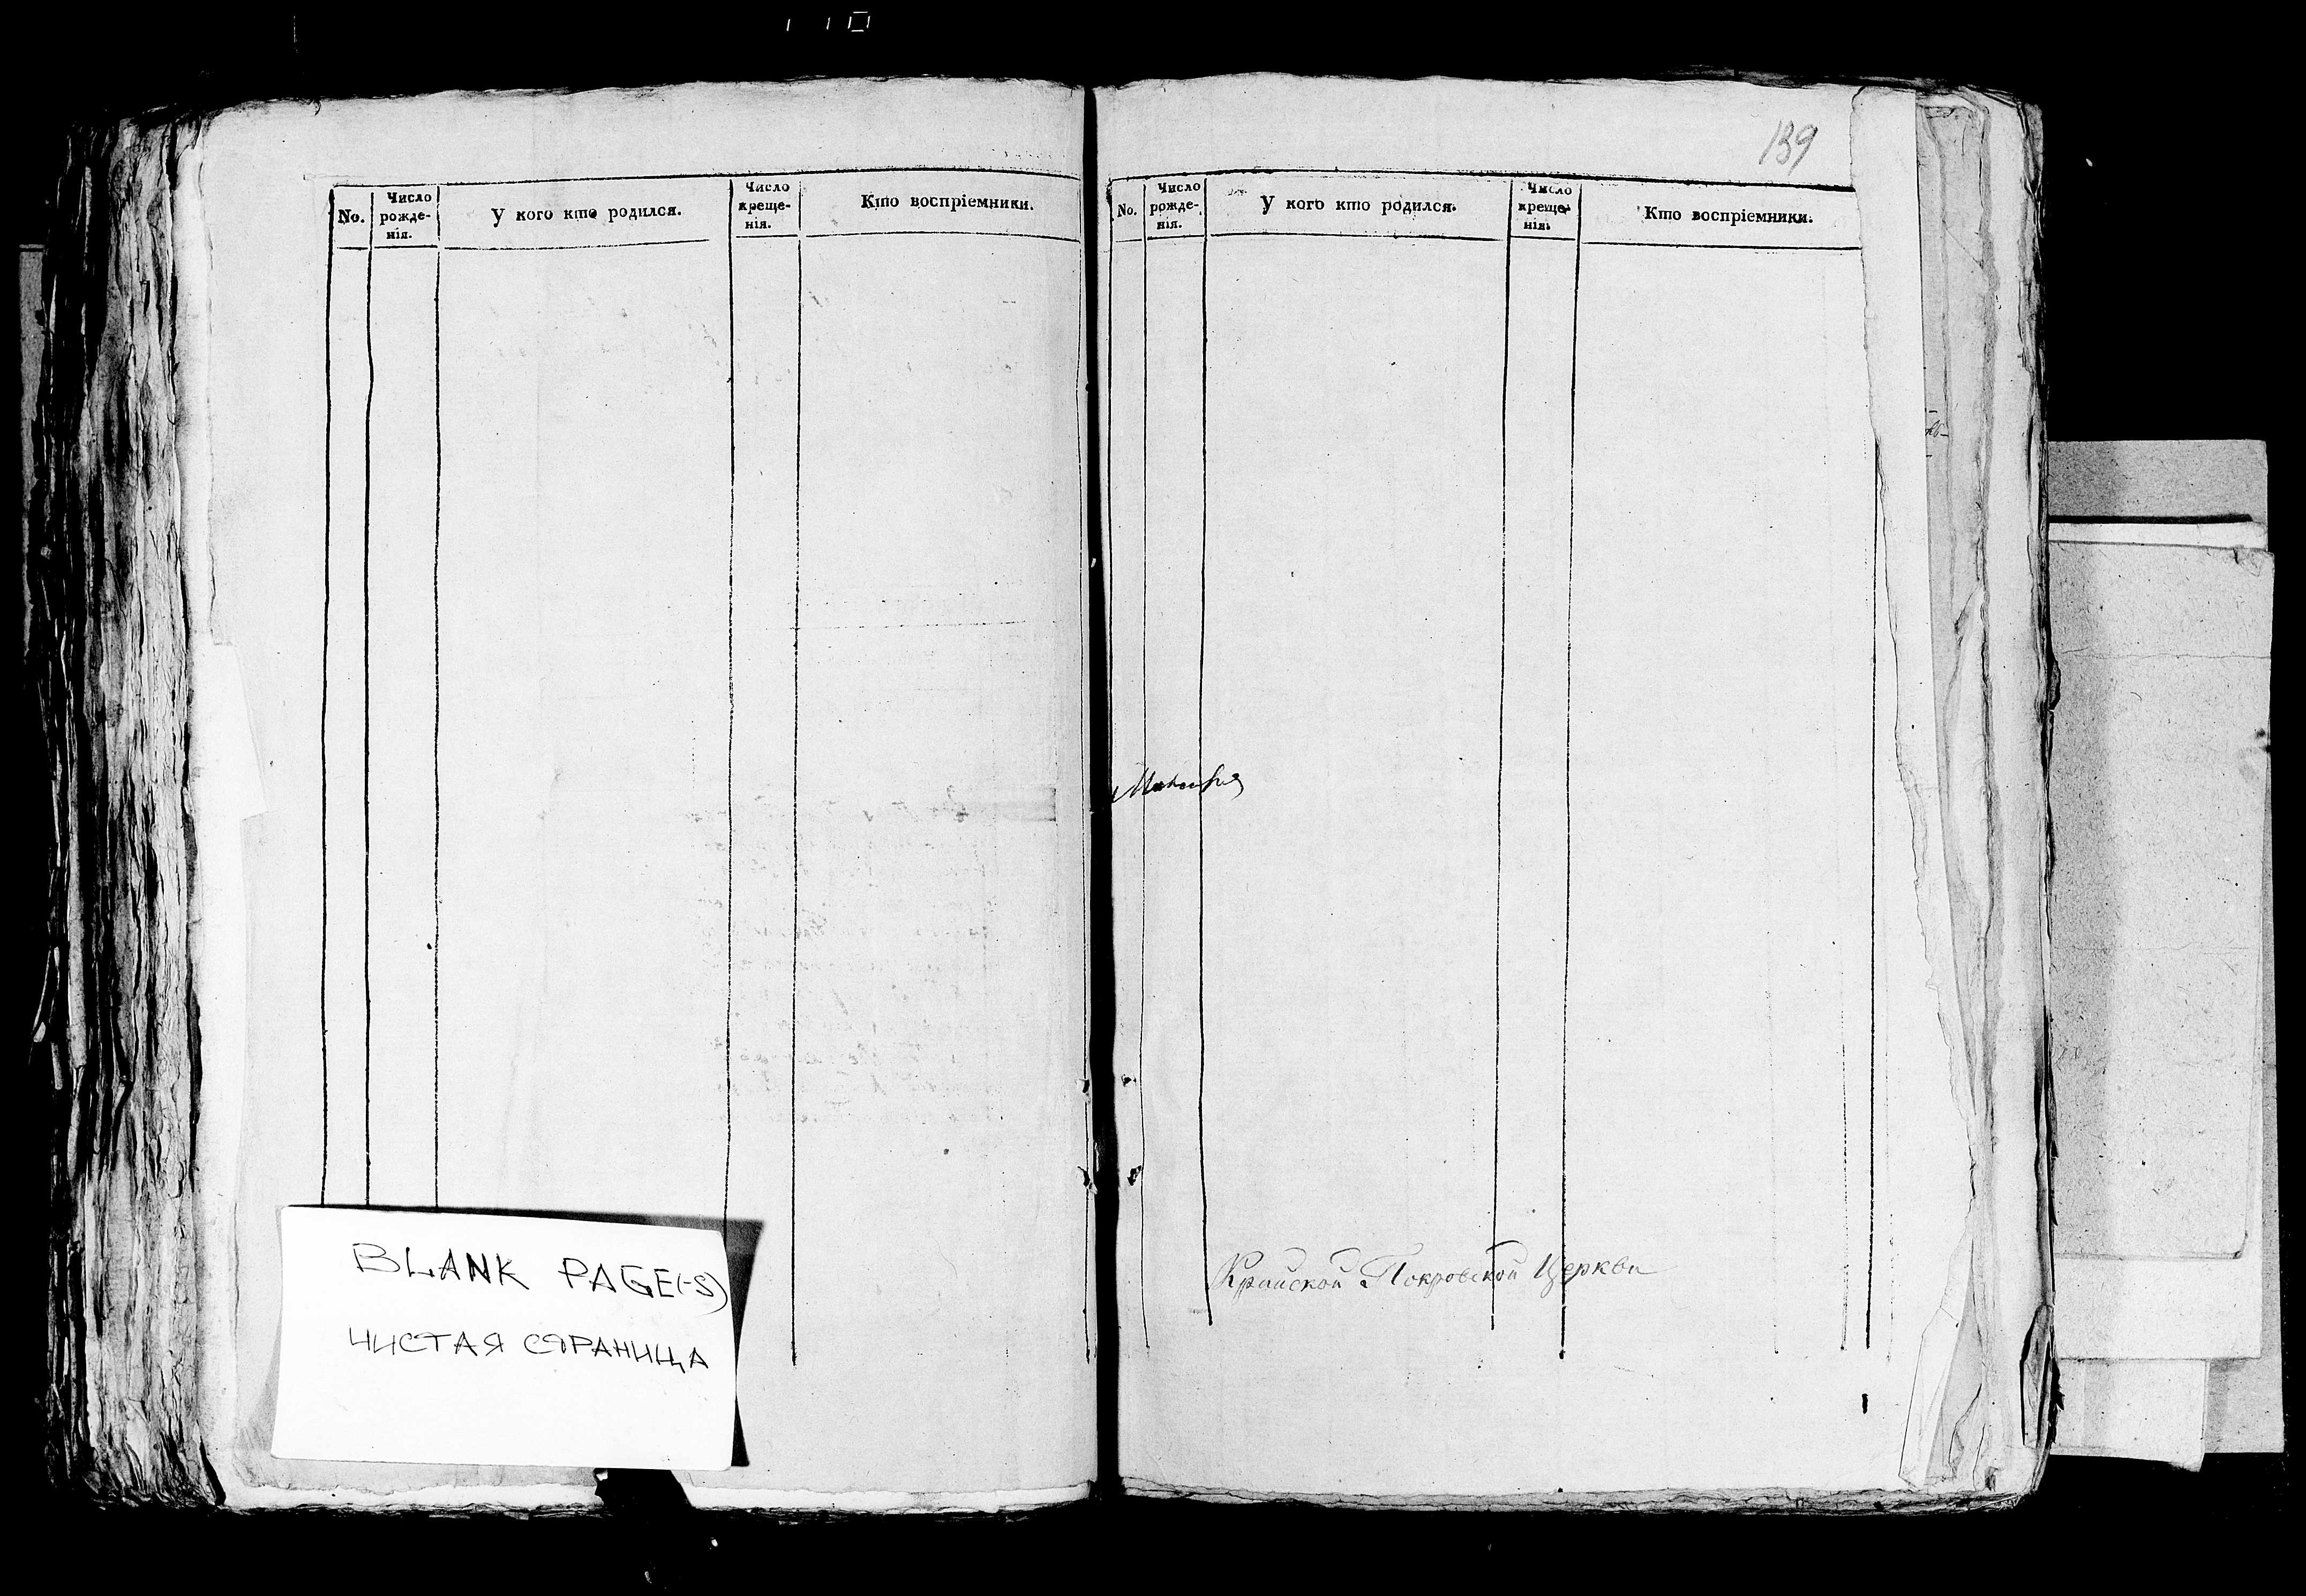 No. Число рожде-нія. У кого кто родился. Число креще-нія. Кто воспріемники.
139
No. Число рожде-нія. У кого кто родился. Число креще-нія. Кто воспріемники.
Покровской Церкви
BLANK PAGE(-S)
ЧИСТАЯ СТРАНИЦА